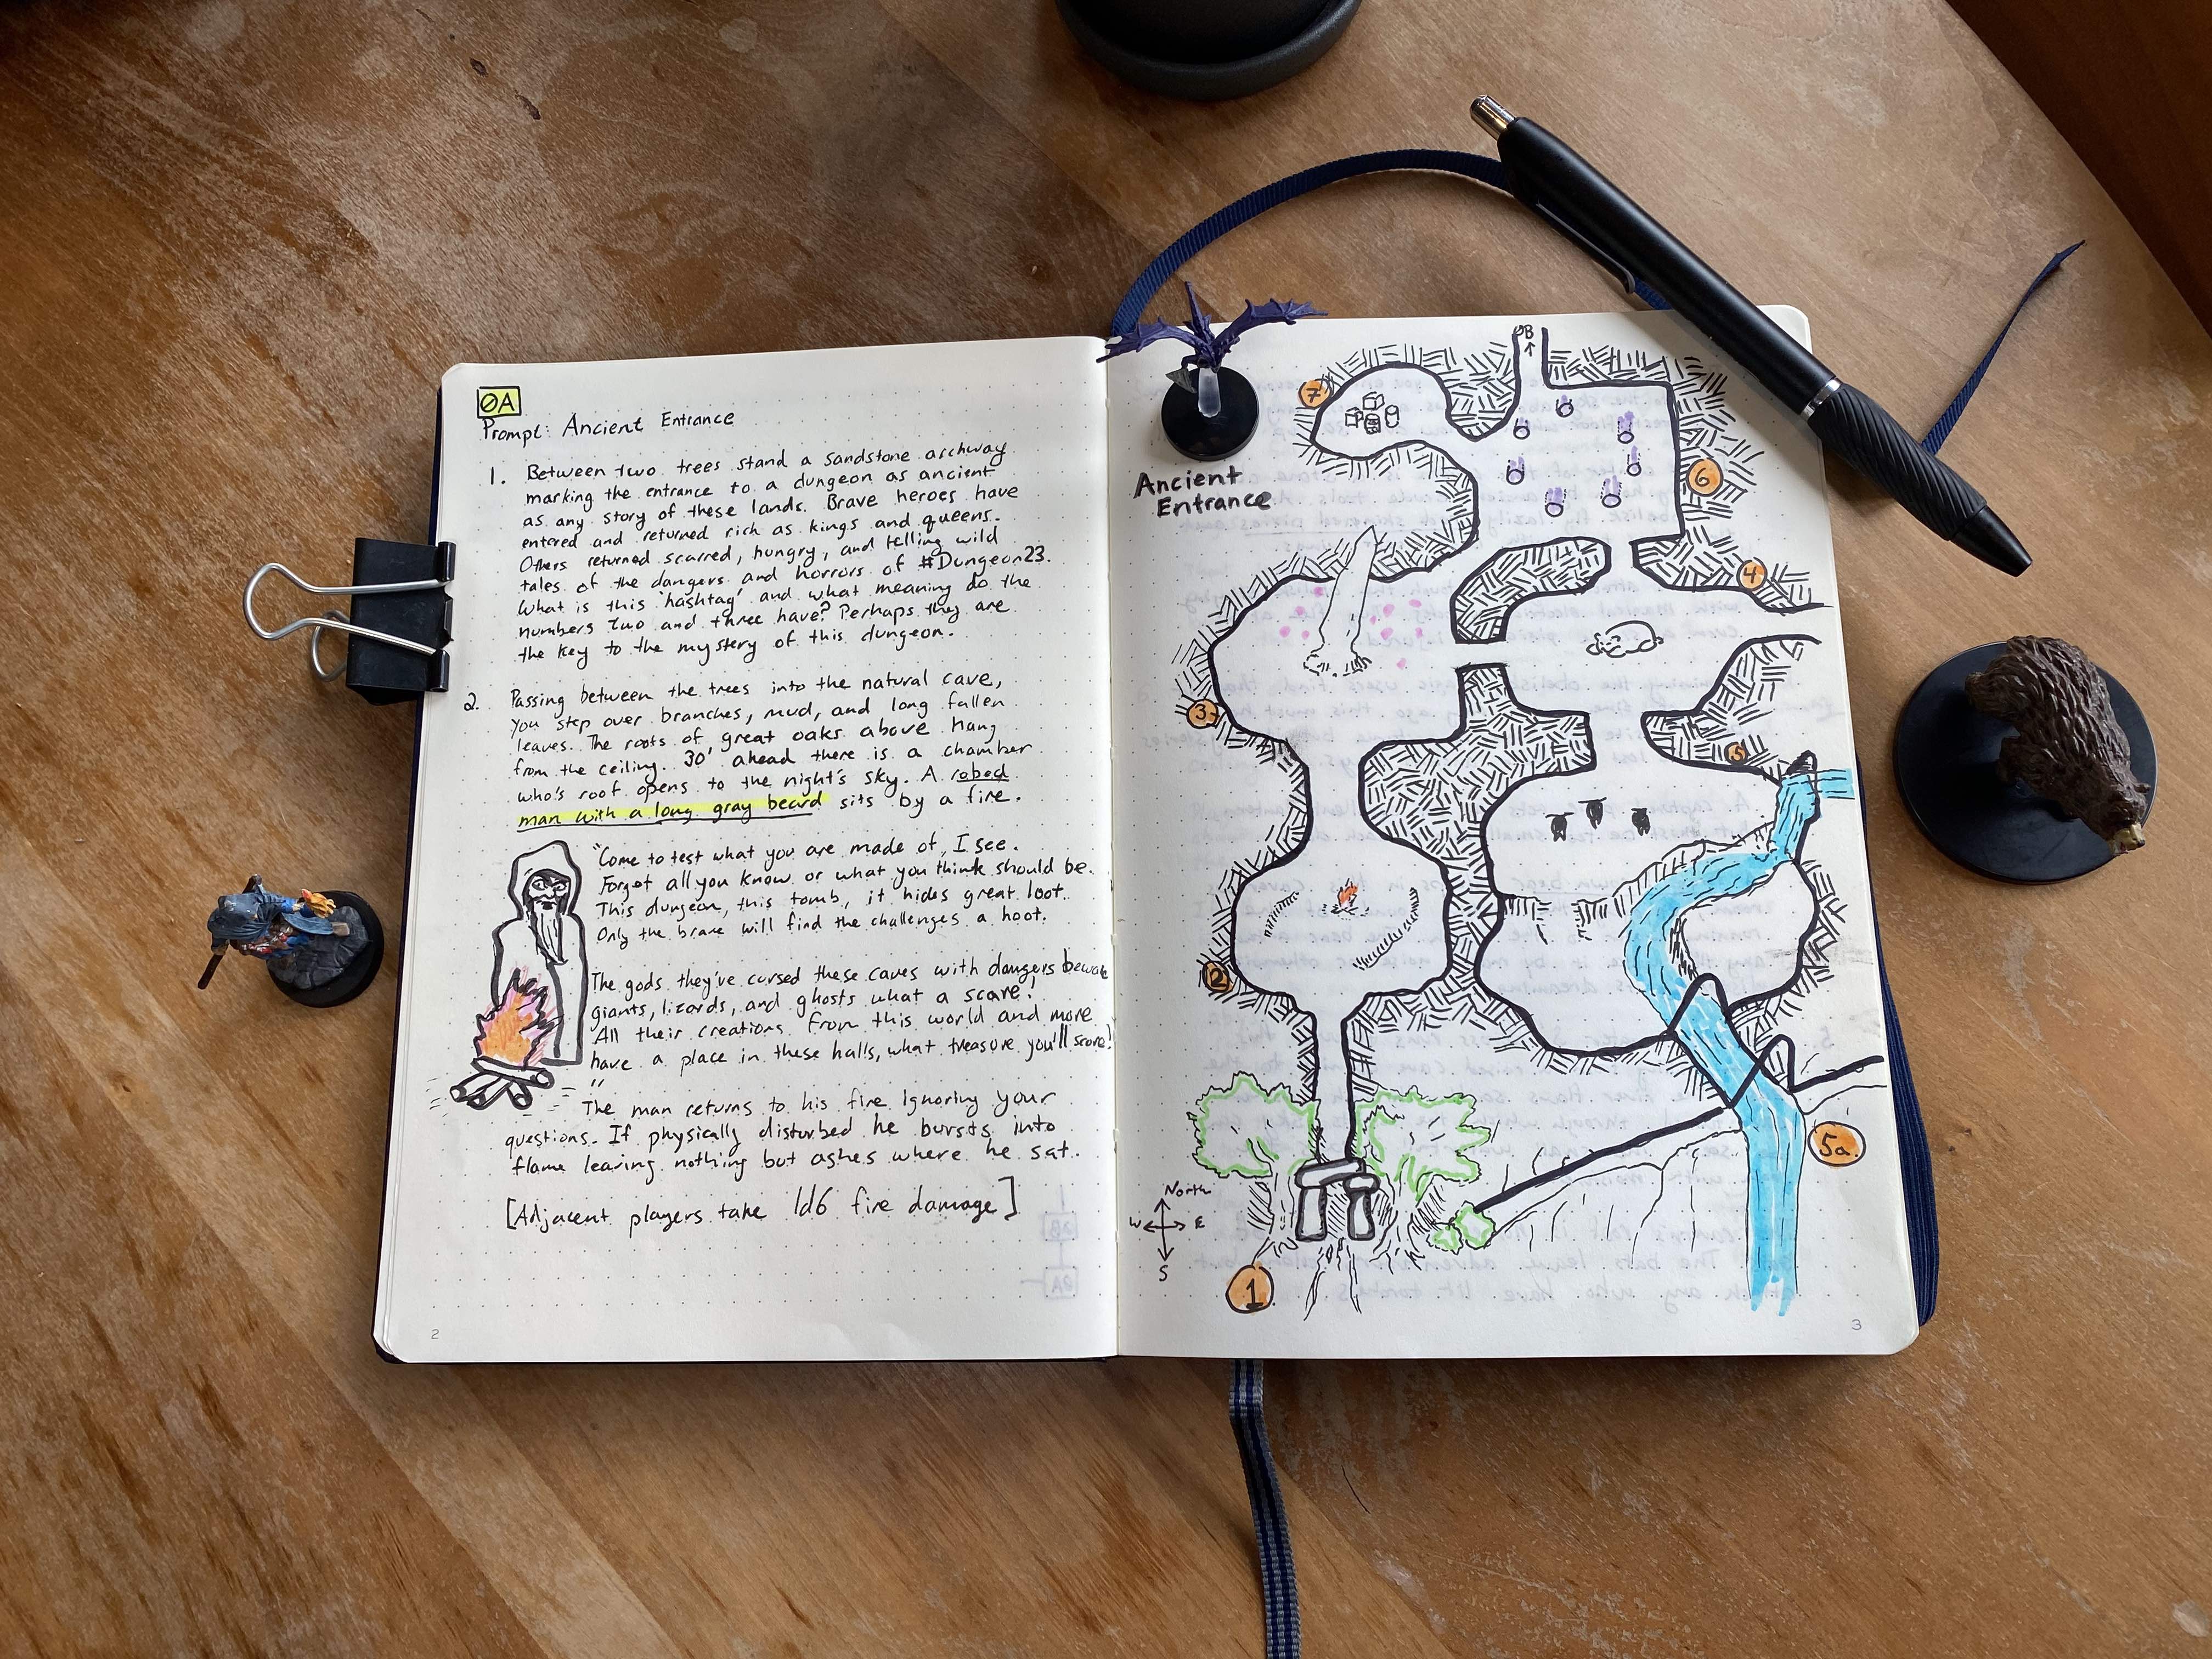 ØA
Prompt: Ancient Entrance
1. Between two trees stand a sandstone archway
marking the entrance to a dungeon as ancient
as any story of these lands. Brave heroes have
entered and returned rich as kings and queens.
Others returned scarred, hungry, and telling wild
tales of the dangers and horrors of #Dungeon23.
What is this 'hashtag' and what meaning do the
numbers two and three have? Perhaps they are
the key to the mystery of this dungeon.
2. Passing between the trees into the natural cave,
you step over branches, mud, and long fallen
leaves. The roots of great oaks above hang
from the ceiling. 30' ahead there is a chamber
who's roof opens to the night's sky. A robed
man with a long gray beard sits by a fire.
"Come to test what you are made of, I see.
Forget all you know or what you think should be.
This dungeon, this tomb, it hides great loot.
Only the brave will find the challenges a hoot.
The gods they've cursed these caves with dangers beware
giants, lizards, and ghosts what a scare!
All their creations from this world and more
have a place in these halls, what treasure you'll score!
"
The man returns to his fire ignoring your
questions. If physically disturbed he bursts into
flame leaving nothing but ashes where he sat.
[Adjacent players take 1d6 fire damage]
2
ØB
7
6
Ancient
Entrance
4
3
5
2
5a.
North
W E
S
1
3